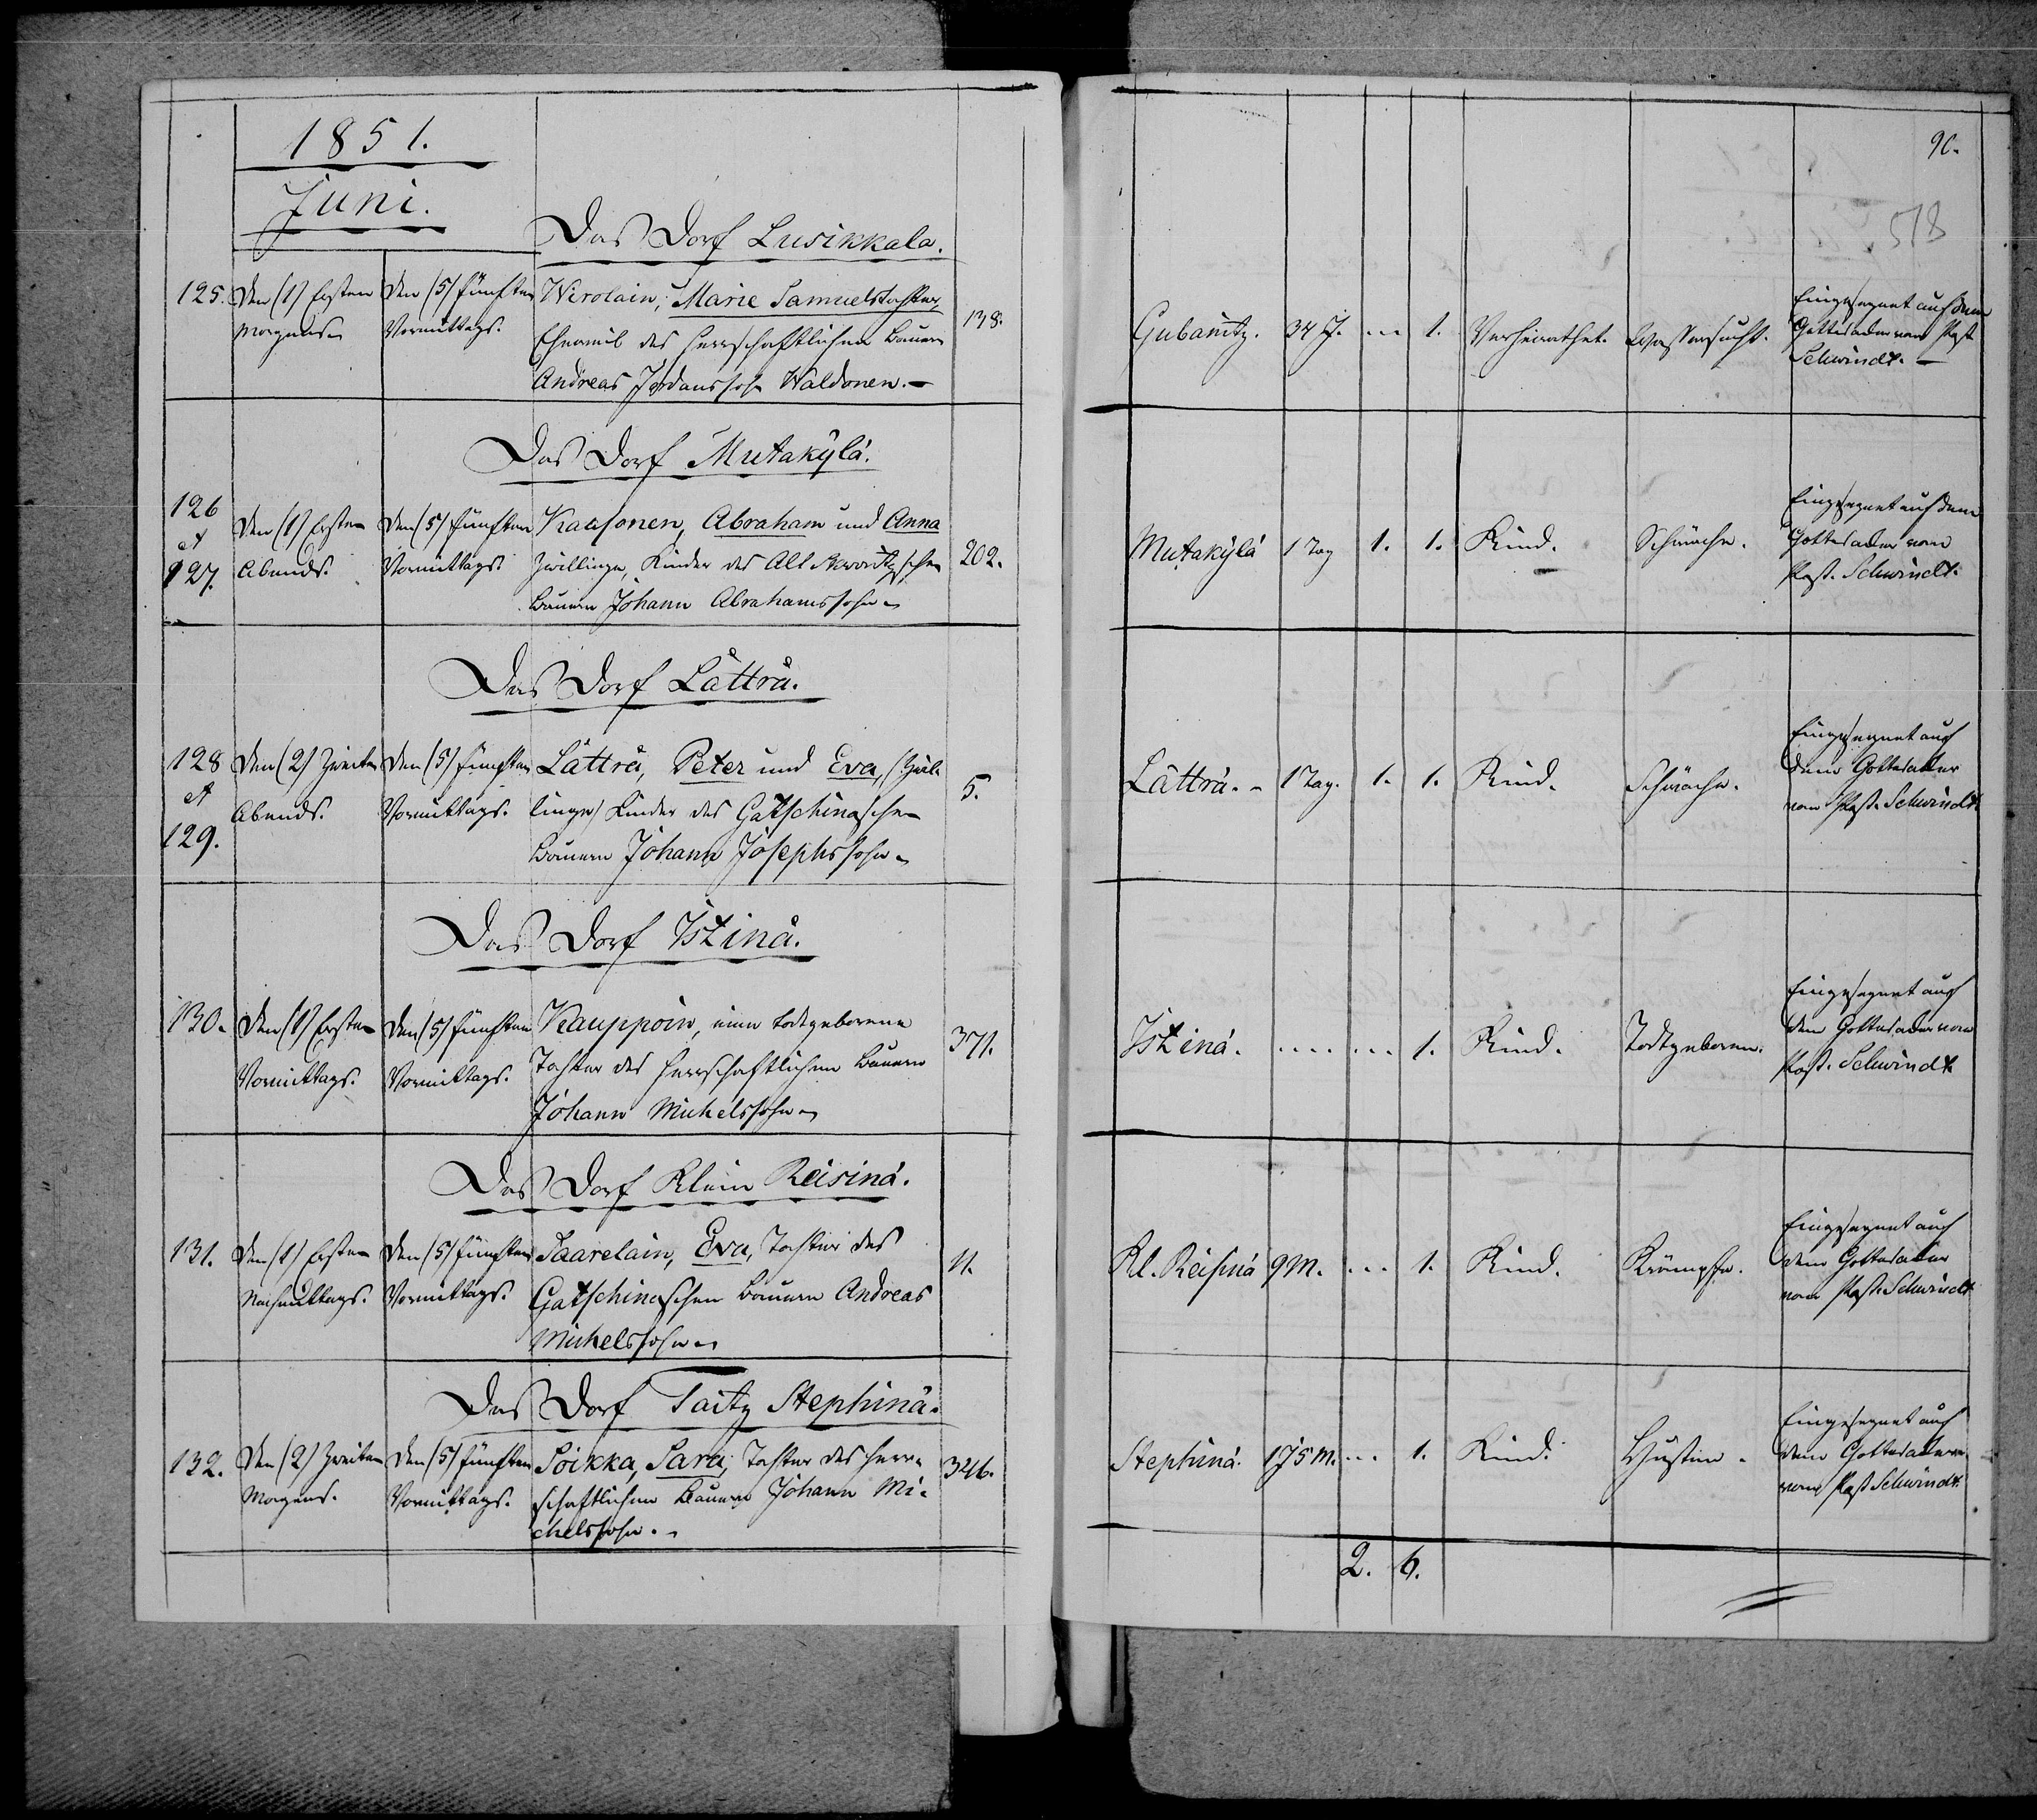 1851.
Juni.
Das Dorf Lusikkala.
125. Den (1) Ersten Den (5) fünften Wirolain, Marie Samuelstochter, 138.
Morgens. Vormittags. Eheweib des herrschaftlichen Bauern
Andreas Jordanssohn Waldonen.
Das Dorf Mutakylä.
126 et 127. Den (1) Ersten Den (5) fünften Kaasonen, Abraham und Anna 202.
Abends. Vormittags. Zwillinge, Kinder des Alt Skworitzschen
Bauern Johann Abrahamssohn
Das Dorf Lätträ.
128 et 129. Den (2) Zweiten Den (5) fünften Lätträ, Peter und Eva, (Zwil- 5.
Abends. Vormittags. linge) Kinder des Gatschinaschen
Bauern Johann Josephssohn
Das Dorf Istinä.
130. Den (1) Ersten Den (5) fünften Kauppoin, eine todtgeborene 371.
Vormittags. Vormittags. Tochter des herrschaftlichen Bauern
Johann Michelssohn
Das Dorf Klein Reisinä.
131. Den (1) Ersten Den (5) fünften Saarelain, Eva, Tochter des 11.
Nachmittags. Vormittags. Gatschinaschen Bauern Andreas
Michelssohn
Das Dorf Taitz Stephinä.
132. Den (2) Zweiten Den (5) fünften Soikka, Sara, Tochter des herr- 346.
Morgens. Vormittags. schaftlichen Bauern Johann Mi-
chelssohn.
90.
518
Gubanitz. 34 J. ... 1. Verheirathet. Wassersucht. Eingesegnet auf dem
Gottesacker vom Past.
Schwindt.
Mutakylä 1 Tag 1. 1. Kind. Schwäche. Eingesegnet auf dem
Gottesacker vom
Past. Schwindt.
Lätträ. 1 Tag. 1. 1. Kind. Schwäche. Eingesegnet auf
dem Gottesacker
vom Past. Schwindt.
Istinä. .... ... 1. Kind. Todtgeboren. Eingesegnet auf
dem Gottesacker vom
Past. Schwindt
Kl. Reisinä 9 M. ... 1. Kind. Krämpfe. Eingesegnet auf
dem Gottesacker
vom Past. Schwindt
Stephinä. 1 J 5 M. ... 1. Kind. Husten. Eingesegnet auf
dem Gottesacker
vom Past Schwindt.
2. 6.